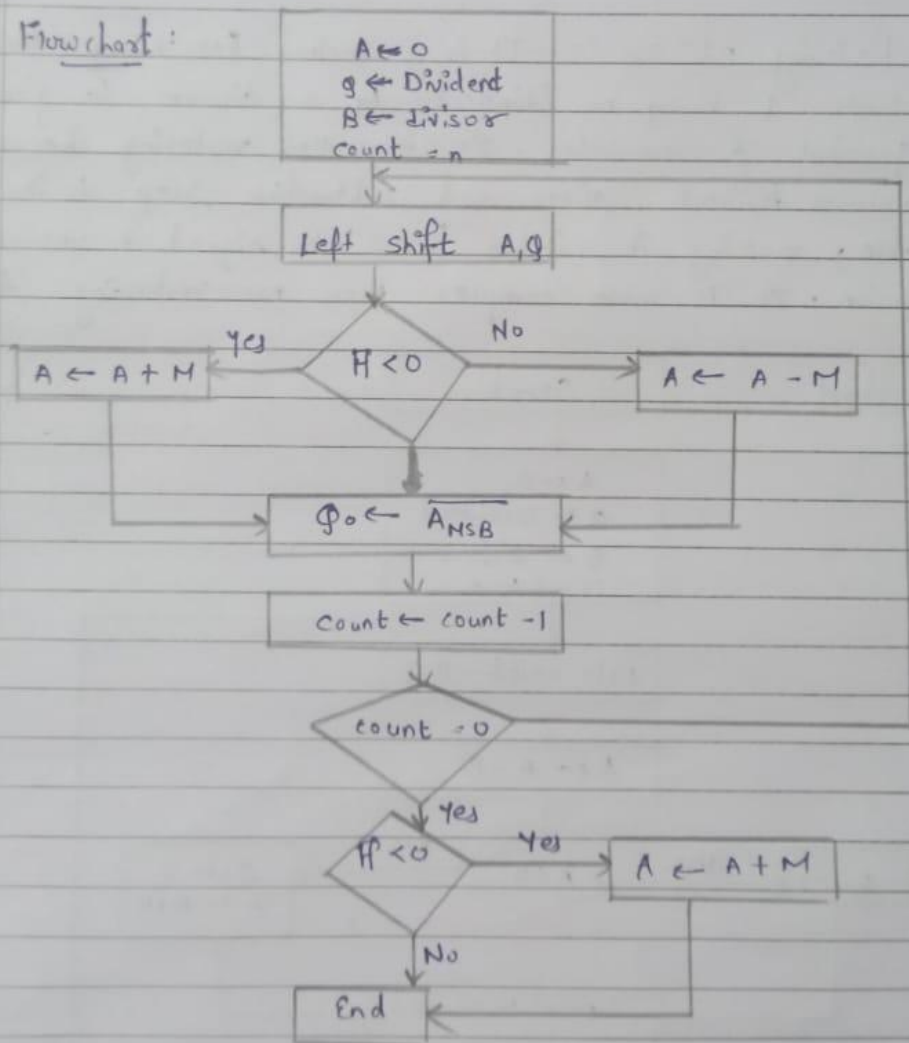 Flowchart :
A ← 0
Q ← Divident
B ← divisor
count = n
Left shift A,Q
Yes
A < 0
No
A ← A + M
A ← A - M
Q₀ ← A̅M̅S̅B̅
count ← count -1
count = 0
Yes
A < 0
Yes
A ← A + M
No
End